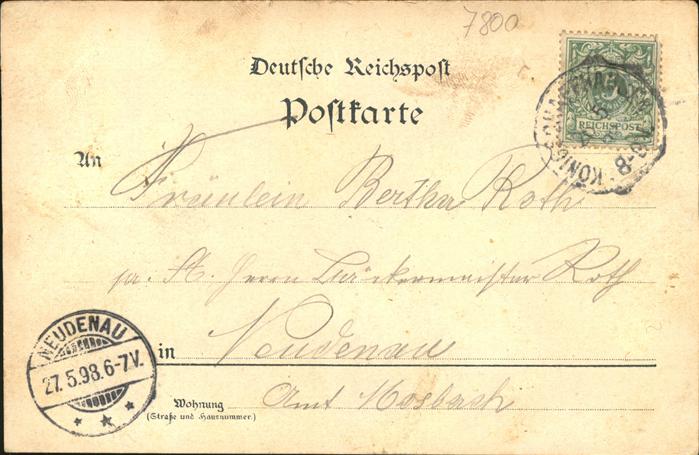 7800
Deutsche Reichspost
Postkarte
REICHSPOST
An Fräulein Bertha Roth
Herrn Bäckermeister Roth
in Neudenau
Amt Mosbach
Wohnung
(Straße und Hausnummer.)
NEUDENAU
27.5.98.6-7V.